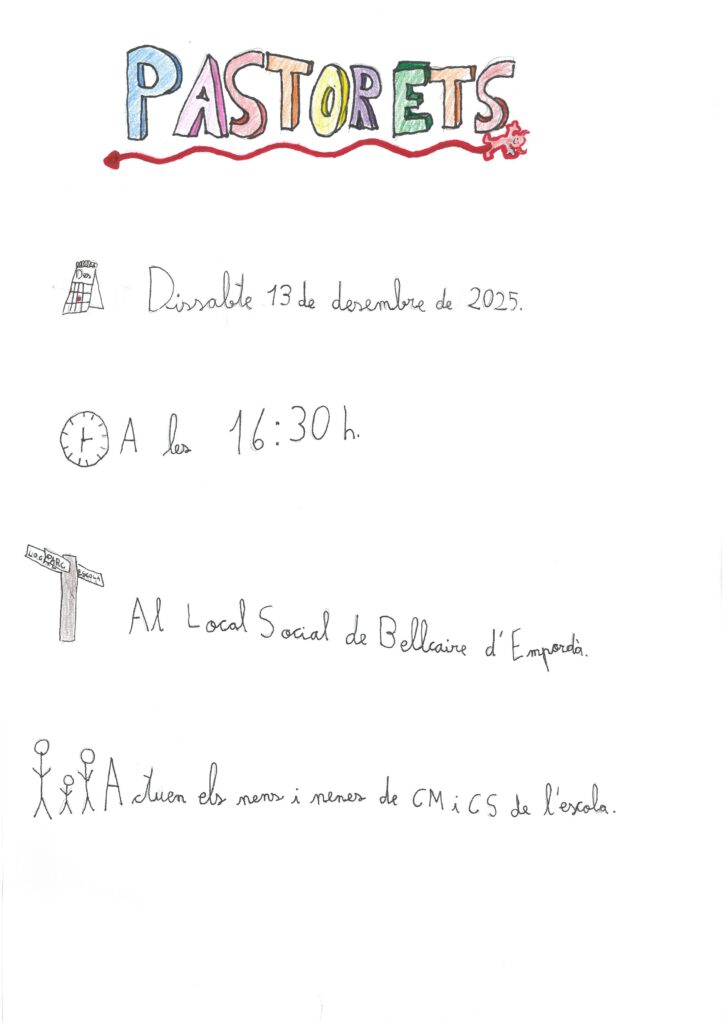 PASTORETS
Dies
Dissabte 13 de desembre de 2025.
A les 16:30 h.
PARC
ESCOLA
Al Local Social de Bellcaire d'Empordà.
Actuen els nens i nenes de CM i CS de l'escola.